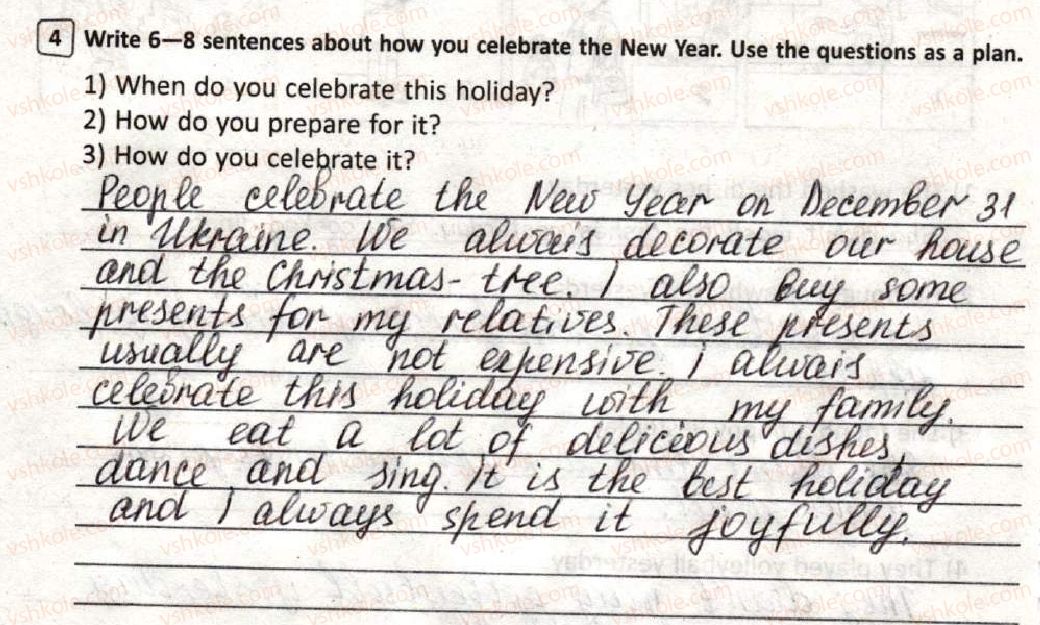 4 Write 6—8 sentences about how you celebrate the New Year. Use the questions as a plan.
1) When do you celebrate this holiday?
2) How do you prepare for it?
3) How do you celebrate it?
People celebrate the New Year on December 31
in Ukraine. We alwais decorate our house
and the Christmas-tree. I also buy some
presents for my relatives. These presents
usually are not expensive. I alwais
celebrate this holiday with my family.
We eat a lot of delicious dishes,
dance and sing. It is the best holiday
and I always spend it joyfully.